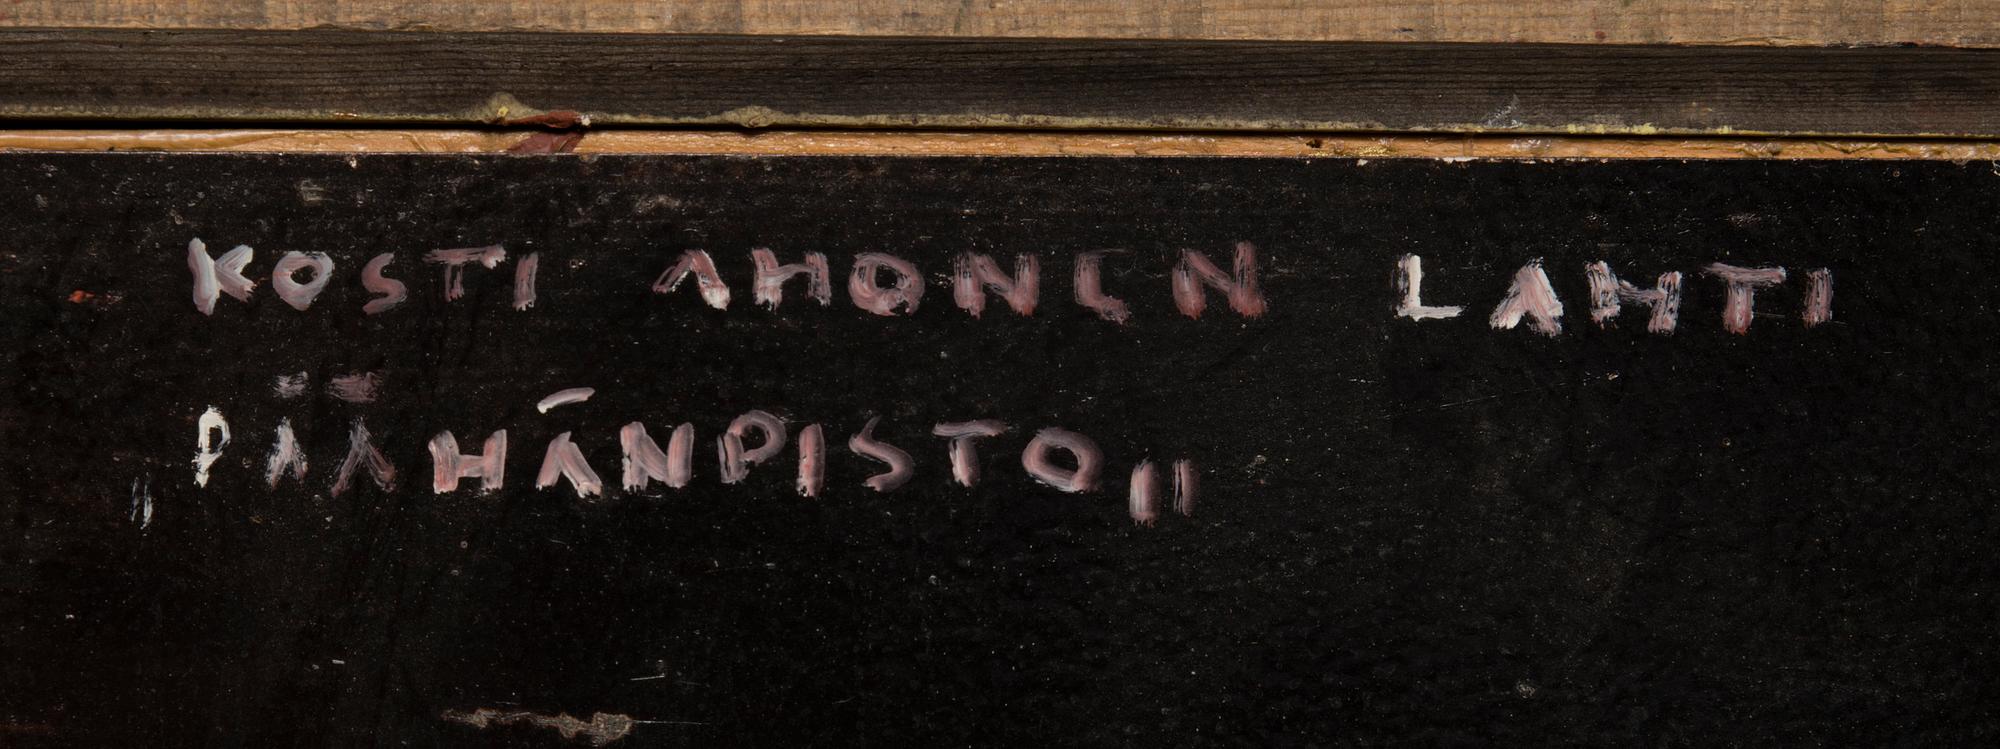 KOSTI AHONEN LAHTI
"PÄÄHÄNPISTO"